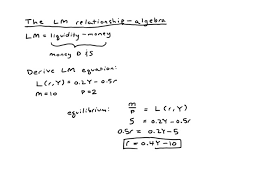 The LM relationship-algebra
LM = liquidity-money
money D & S
Derive LM equation:
L(r,Y) = 0.2Y - 0.5r
m = 10 P = 2
equilibrium: m/P = L(r,Y)
5 = 0.2Y - 0.5r
0.5r = 0.2Y - 5
r = 0.4Y - 10